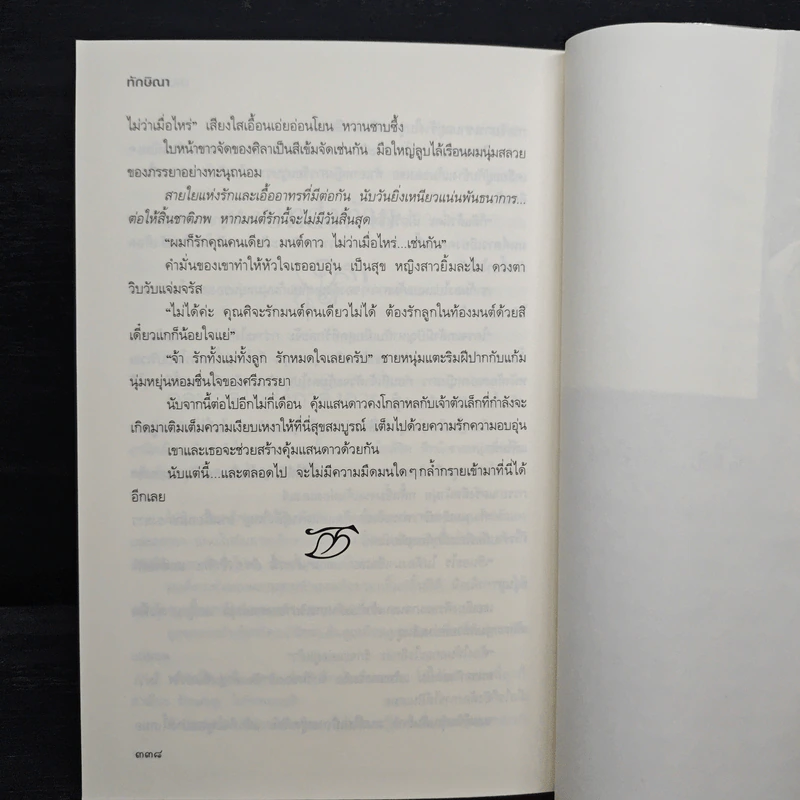 ทักษิณา
ไม่ว่าเมื่อไหร่” เสียงใสเอื้อนเอ่ยอ่อนโยน หวานซาบซึ้ง
ใบหน้าขาวจัดของศิลาเป็นสีเข้มจัดเช่นกัน มือใหญ่ลูบไล้เรือนผมนุ่มสลวย
ของภรรยาอย่างทะนุถนอม
สายใยแห่งรักและเอื้ออาทรที่มีต่อกัน นับวันยิ่งเหนียวแน่นพันธนาการ...
ต่อให้สิ้นชาติภพ หากมนต์รักนี้จะไม่มีวันสิ้นสุด
“ผมก็รักคุณคนเดียว มนต์ดาว ไม่ว่าเมื่อไหร่...เช่นกัน”
คำมั่นของเขาทำให้หัวใจเธออบอุ่น เป็นสุข หญิงสาวยิ้มละไม ดวงตา
วิบวับแจ่มจรัส
“ไม่ได้ค่ะ คุณศิจะรักมนต์คนเดียวไม่ได้ ต้องรักลูกในท้องมนต์ด้วยสิ
เดี๋ยวแกก็น้อยใจแย่”
“จ้า รักทั้งแม่ทั้งลูก รักหมดใจเลยครับ” ชายหนุ่มแตะริมฝีปากกับแก้ม
นุ่มหยุ่นหอมชื่นใจของศรีภรรยา
นับจากนี้ต่อไปอีกไม่กี่เดือน คุ้มแสนดาวคงโกลาหลกับเจ้าตัวเล็กที่กำลังจะ
เกิดมาเติมเต็มความเงียบเหงาให้ที่นี่สุขสมบูรณ์ เต็มไปด้วยความรักความอบอุ่น
เขาและเธอจะช่วยสร้างคุ้มแสนดาวด้วยกัน
นับแต่นี้...และตลอดไป จะไม่มีความมืดมนใดๆกล้ำกรายเข้ามาที่นี่ได้
อีกเลย
๓๓๘